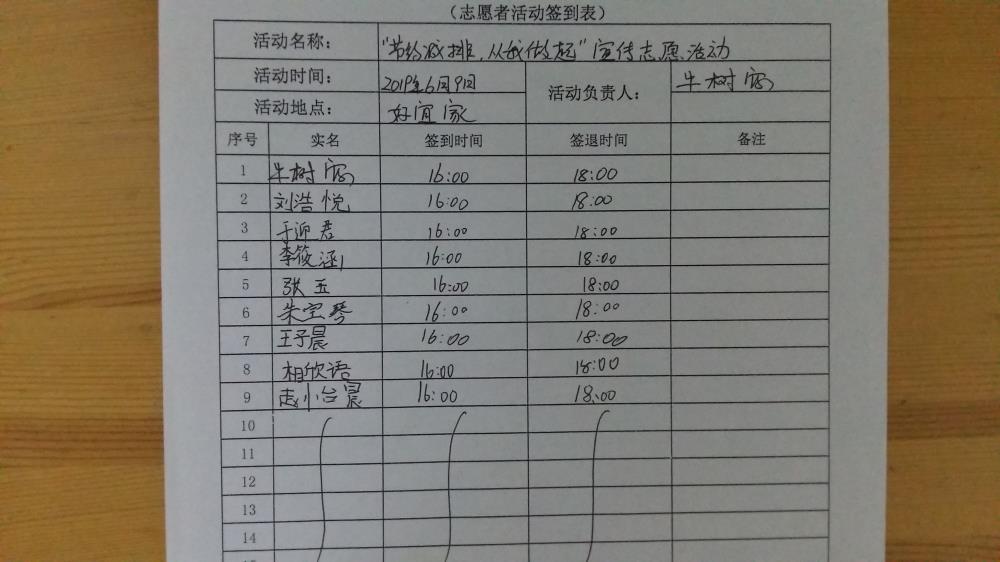 （志愿者活动签到表）
活动名称： “节约减排，从我做起”宣传志愿活动
活动时间： 2019年6月9日 活动负责人： 牛树
活动地点： 好宜家
序号 实名 签到时间 签退时间 备注
1 牛树 16:00 18:00
2 刘浩悦 16:00 18:00
3 于迎君 16:00 18:00
4 李筱涵 16:00 18:00
5 张玉 16:00 18:00
6 朱宝琴 16:00 18:00
7 王子晨 16:00 18:00
8 相欣语 16:00 18:00
9 赵小 16:00 18:00
10
11
12
13
14